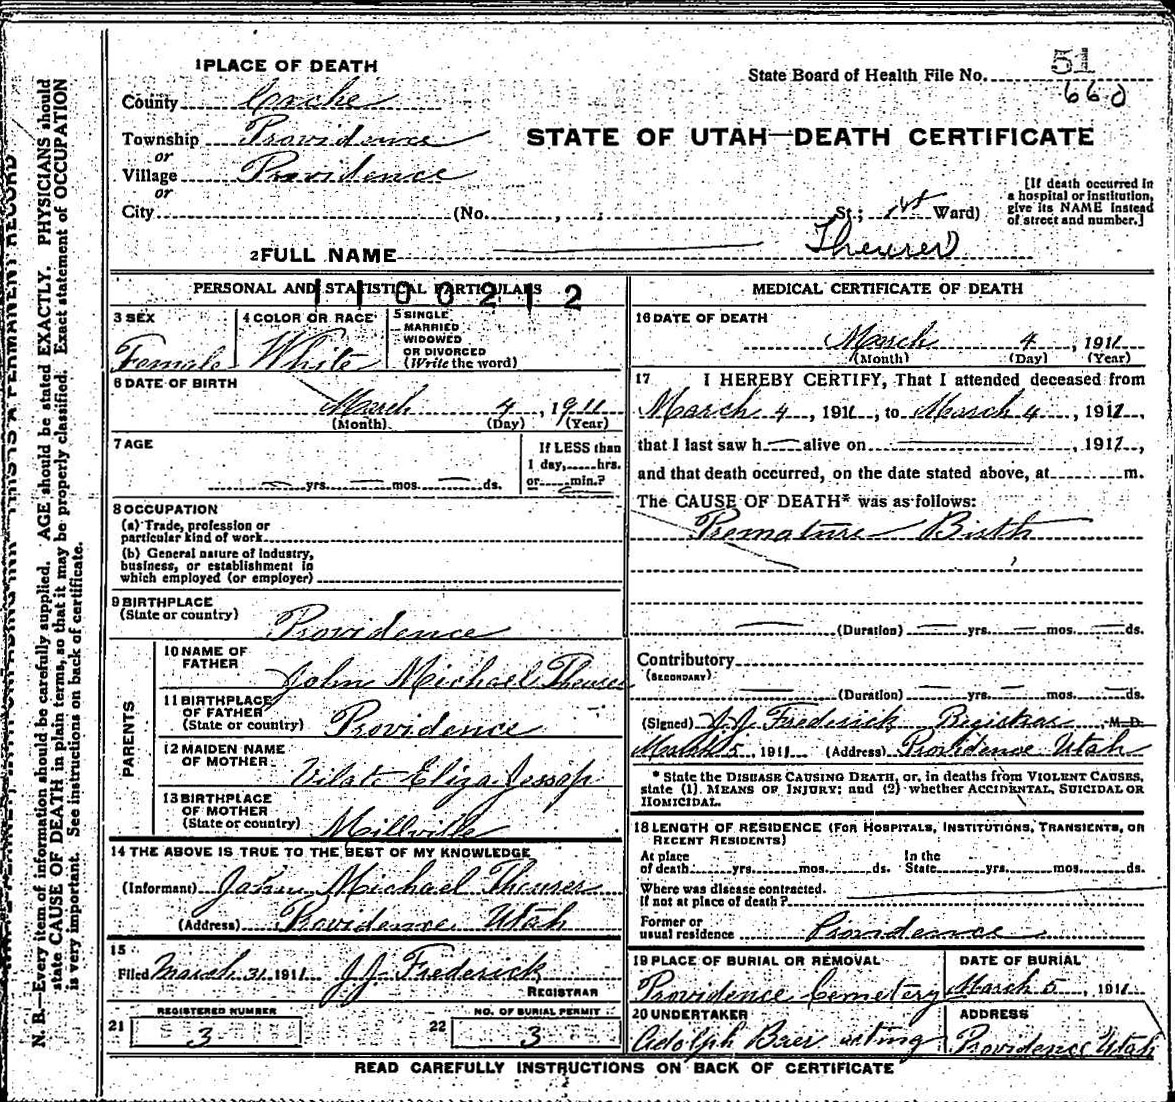 51
State Board of Health File No. 660
1 PLACE OF DEATH
County Cache
Township Providence
or
Village Providence
or
City (No. , St.; 1st Ward)
STATE OF UTAH—DEATH CERTIFICATE
[If death occurred in
a hospital or institution,
give its NAME instead
of street and number.]
2 FULL NAME Theurer
PERSONAL AND STATISTICAL PARTICULARS
1100212
3 SEX
Female
4 COLOR OR RACE
White
5 SINGLE
MARRIED
WIDOWED
OR DIVORCED
(Write the word)
6 DATE OF BIRTH
March 4, 1911
(Month) (Day) (Year)
7 AGE
yrs. mos. ds.
If LESS than
1 day, hrs.
or min.?
8 OCCUPATION
(a) Trade, profession or
particular kind of work
(b) General nature of industry,
business, or establishment in
which employed (or employer)
9 BIRTHPLACE
(State or country) Providence
PARENTS
10 NAME OF
FATHER John Michael Theurer
11 BIRTHPLACE
OF FATHER
(State or country) Providence
12 MAIDEN NAME
OF MOTHER Vilate Eliza Jessop
13 BIRTHPLACE
OF MOTHER
(State or country) Millville
14 THE ABOVE IS TRUE TO THE BEST OF MY KNOWLEDGE
(Informant) John Michael Theurer
(Address) Providence Utah
15
Filed March 31 1911 J. J. Frederick
REGISTRAR
21 REGISTERED NUMBER
3
22 NO. OF BURIAL PERMIT
3
MEDICAL CERTIFICATE OF DEATH
16 DATE OF DEATH
March 4, 1911
(Month) (Day) (Year)
17 I HEREBY CERTIFY, That I attended deceased from
March 4, 1911, to March 4, 1911,
that I last saw h alive on , 1911,
and that death occurred, on the date stated above, at m.
The CAUSE OF DEATH* was as follows:
Premature Birth
(Duration) yrs. mos. ds.
Contributory
(SECONDARY)
(Duration) yrs. mos. ds.
(Signed) J. J. Frederick Registrar M.D.
March 5 1911 (Address) Providence Utah
* State the DISEASE CAUSING DEATH, or, in deaths from VIOLENT CAUSES,
state (1) MEANS OF INJURY; and (2) whether ACCIDENTAL, SUICIDAL OR
HOMICIDAL.
18 LENGTH OF RESIDENCE (FOR HOSPITALS, INSTITUTIONS, TRANSIENTS, OR
RECENT RESIDENTS)
At place
of death yrs. mos. ds. In the
State yrs. mos. ds.
Where was disease contracted.
If not at place of death?
Former or
usual residence Providence
19 PLACE OF BURIAL OR REMOVAL
Providence Cemetery
DATE OF BURIAL
March 5, 1911
20 UNDERTAKER
Adolph Baer acting
ADDRESS
Providence Utah
READ CAREFULLY INSTRUCTIONS ON BACK OF CERTIFICATE
N. B.—Every item of information should be carefully supplied. AGE should be stated EXACTLY. PHYSICIANS should
state CAUSE OF DEATH in plain terms, so that it may be properly classified. Exact statement of OCCUPATION
is very important. See instructions on back of certificate.